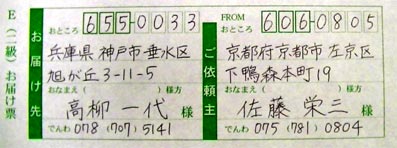 E(二級)お届け票
お届け先
おところ 655-0033
兵庫県神戸市垂水区
旭が丘3-11-5
おなまえ( )様方
高柳 一代 様
でんわ 078(707)5141
ご依頼主
FROM
おところ 606-0805
京都府京都市左京区
下鴨森本町19
おなまえ( )様方
佐藤 栄三 様
でんわ 075(781)0804